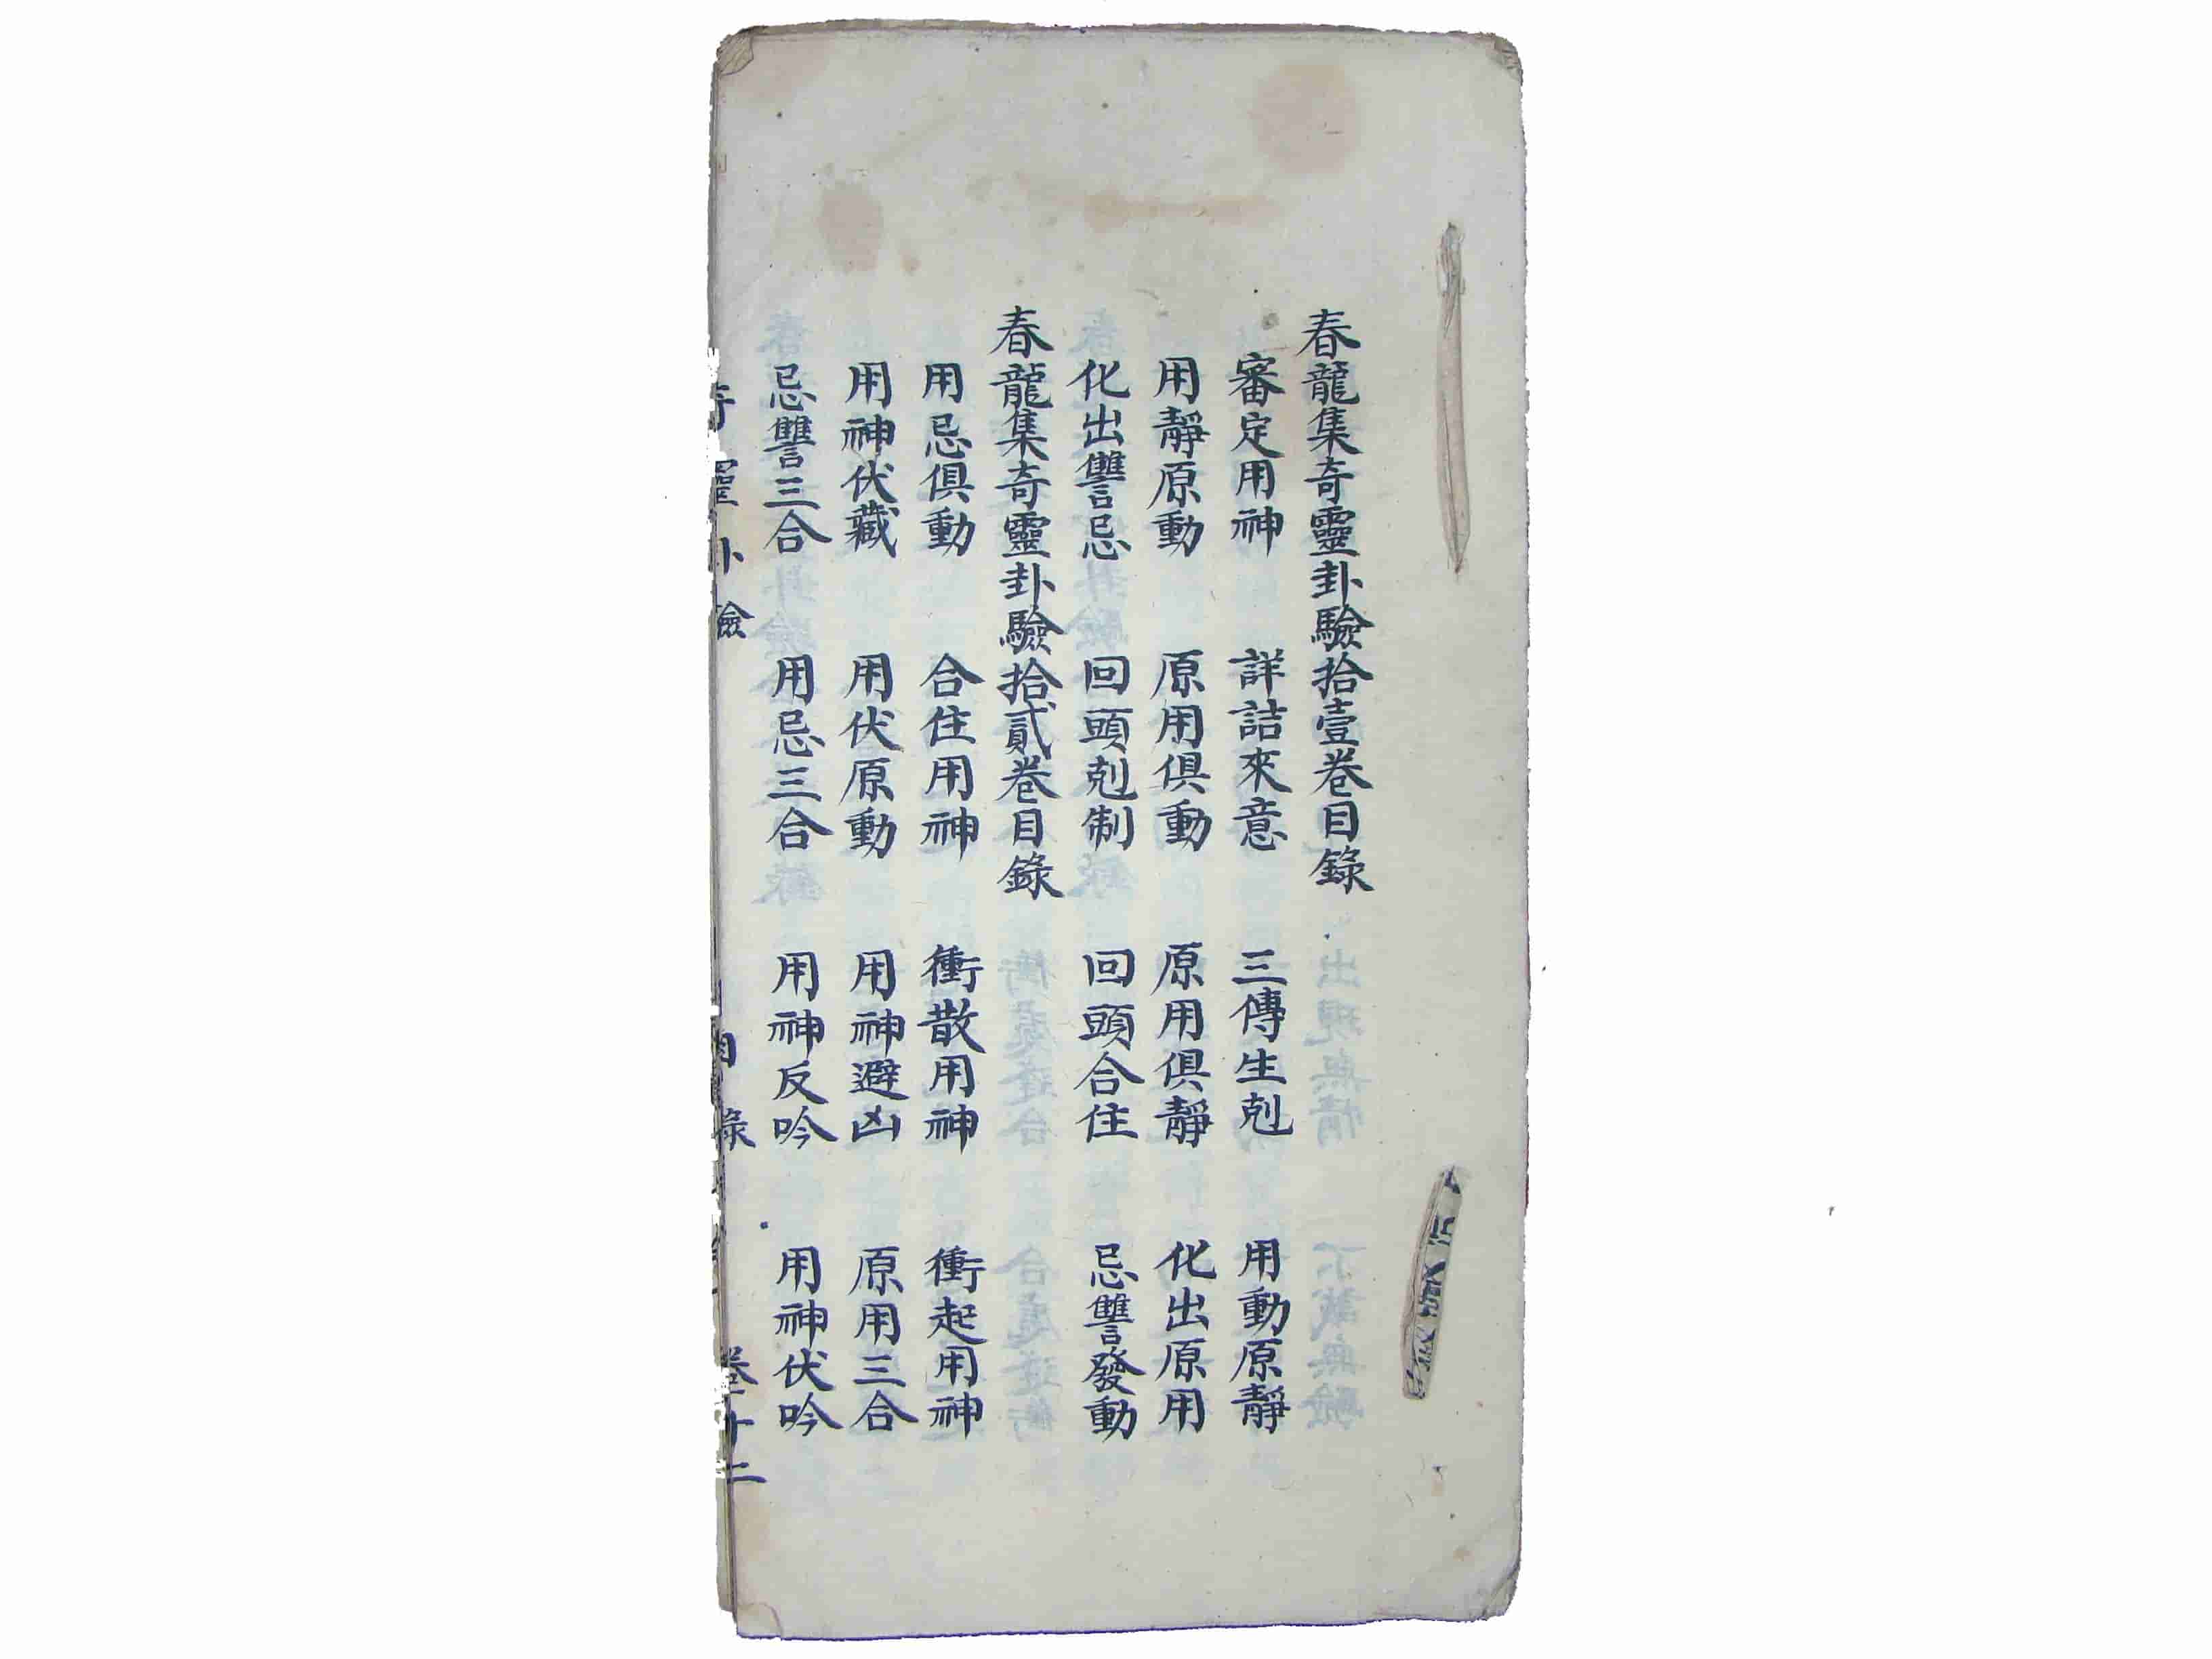 春龍集奇靈卦驗拾壹卷目錄
審定用神　詳詰來意　三傳生剋　用動原靜
用靜原動　原用俱動　原用俱靜　化出原用
化出讐忌　回頭剋制　回頭合住　忌讐發動
春龍集奇靈卦驗拾貳卷目錄
用忌俱動　合住用神　衝散用神　衝起用神
用神伏藏　用伏原動　用神避凶　原用三合
忌讐三合　用忌三合　用神反吟　用神伏吟
奇靈卦驗　目錄　卷十二